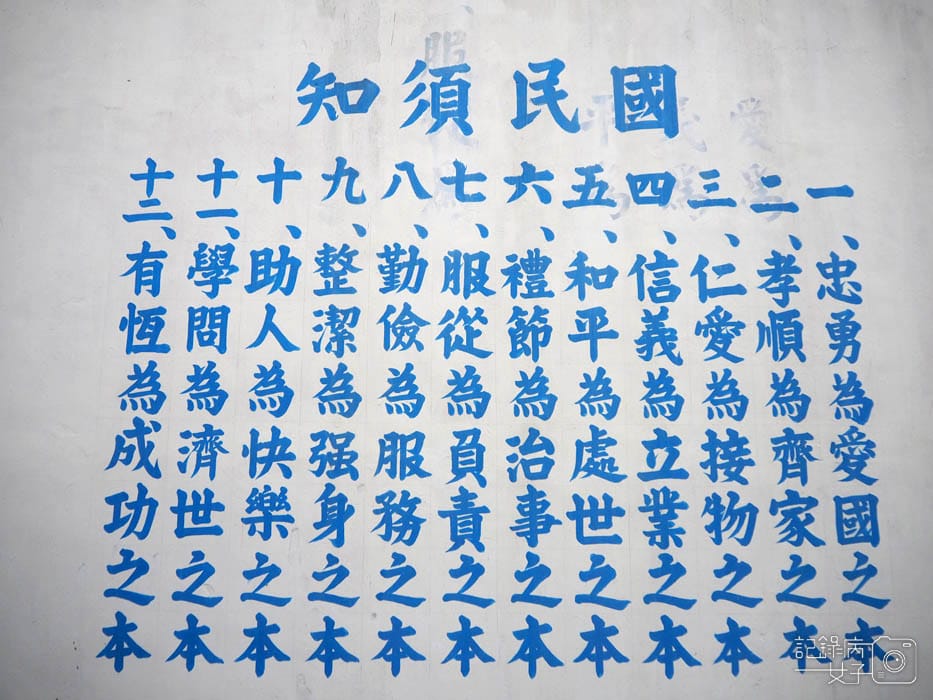 國民須知
一、忠勇為愛國之本
二、孝順為齊家之本
三、仁愛為接物之本
四、信義為立業之本
五、和平為處世之本
六、禮節為治事之本
七、服從為負責之本
八、勤儉為服務之本
九、整潔為强身之本
十、助人為快樂之本
十一、學問為濟世之本
十二、有恆為成功之本
記錄病
女子